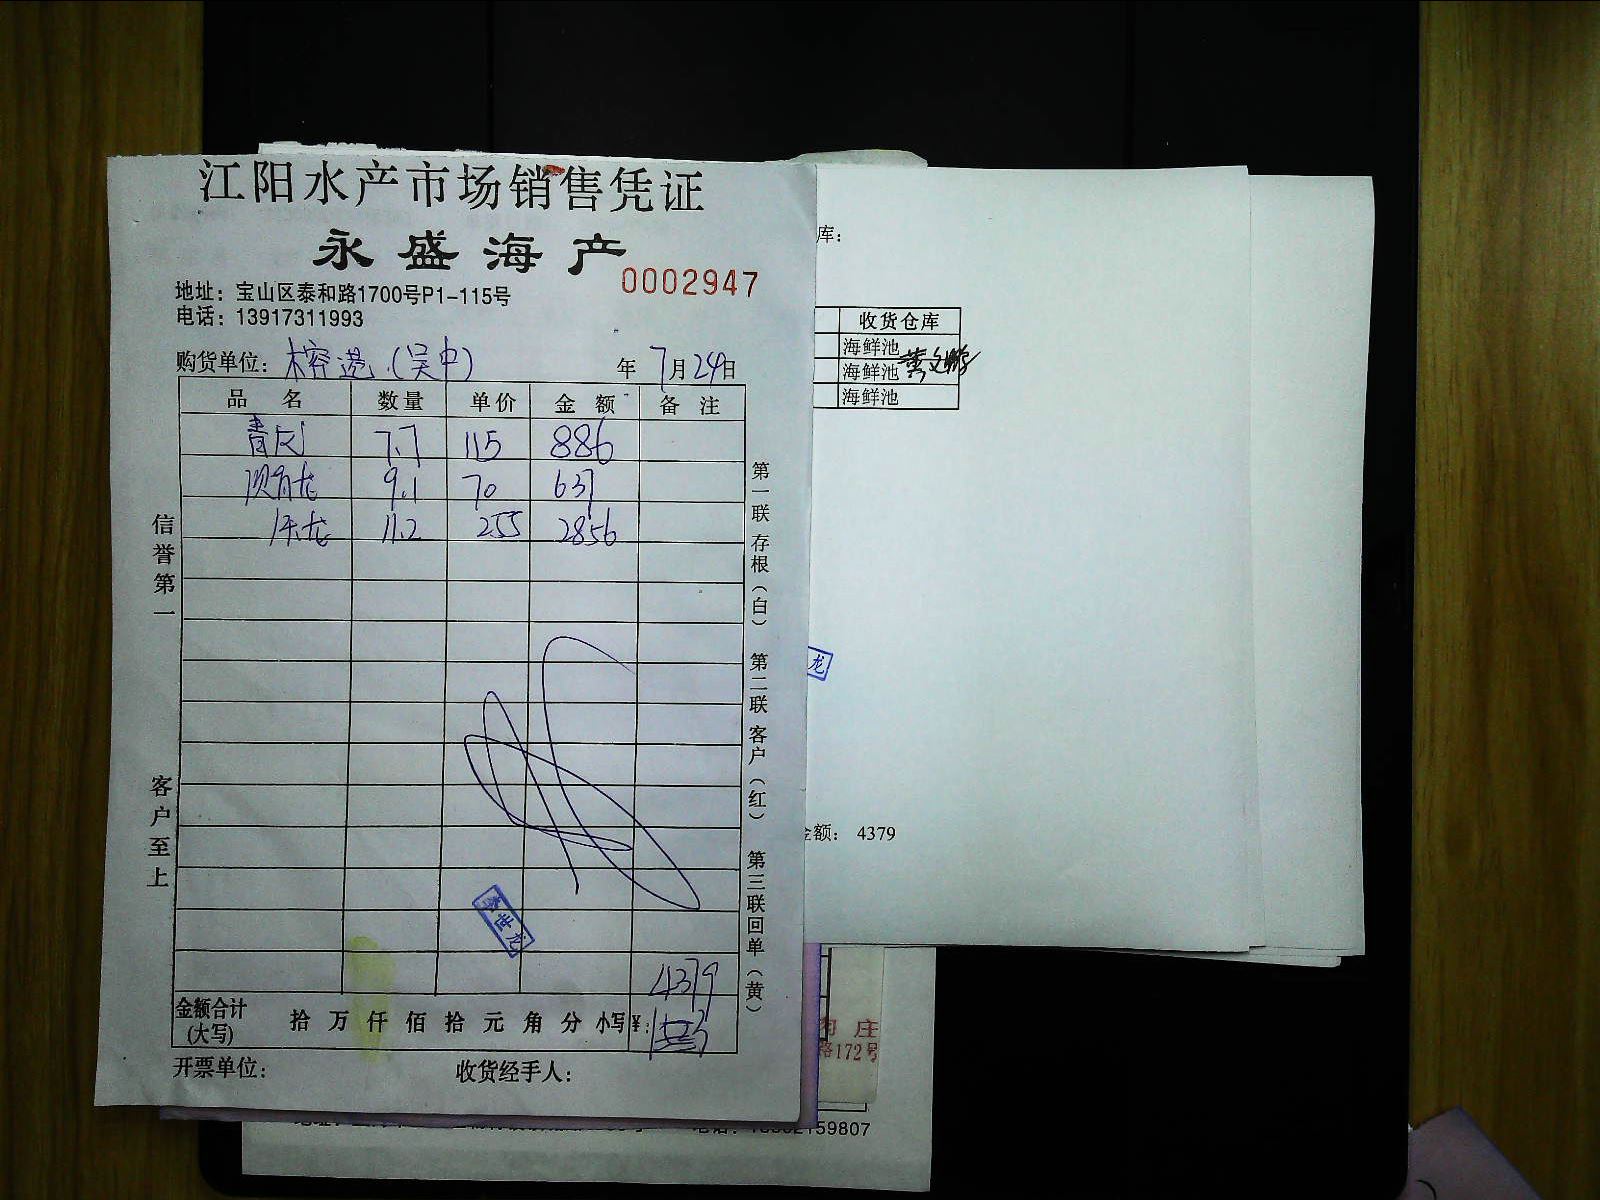 江阳水产市场销售凭证
永盛海产
0002947
地址：宝山区泰和路1700号P1-115号
电话：13917311993
购货单位： 榕港（吴中） 年 7月24日
品 名 数量 单价 金 额 备 注
青尻 7.7 115 886
9.1 70 637
龙 11.2 255 2856
4379
金额合计 拾 万 仟 佰 拾 元 角 分 小写¥：
(大写)
开票单位： 收货经手人：
信誉第一
客户至上
第一联 存根（白） 第二联 客户（红） 第三联 回单（黄）
李世龙
库：
收货仓库
海鲜池
海鲜池
海鲜池
龙
金额： 4379
庄
路172号
59807